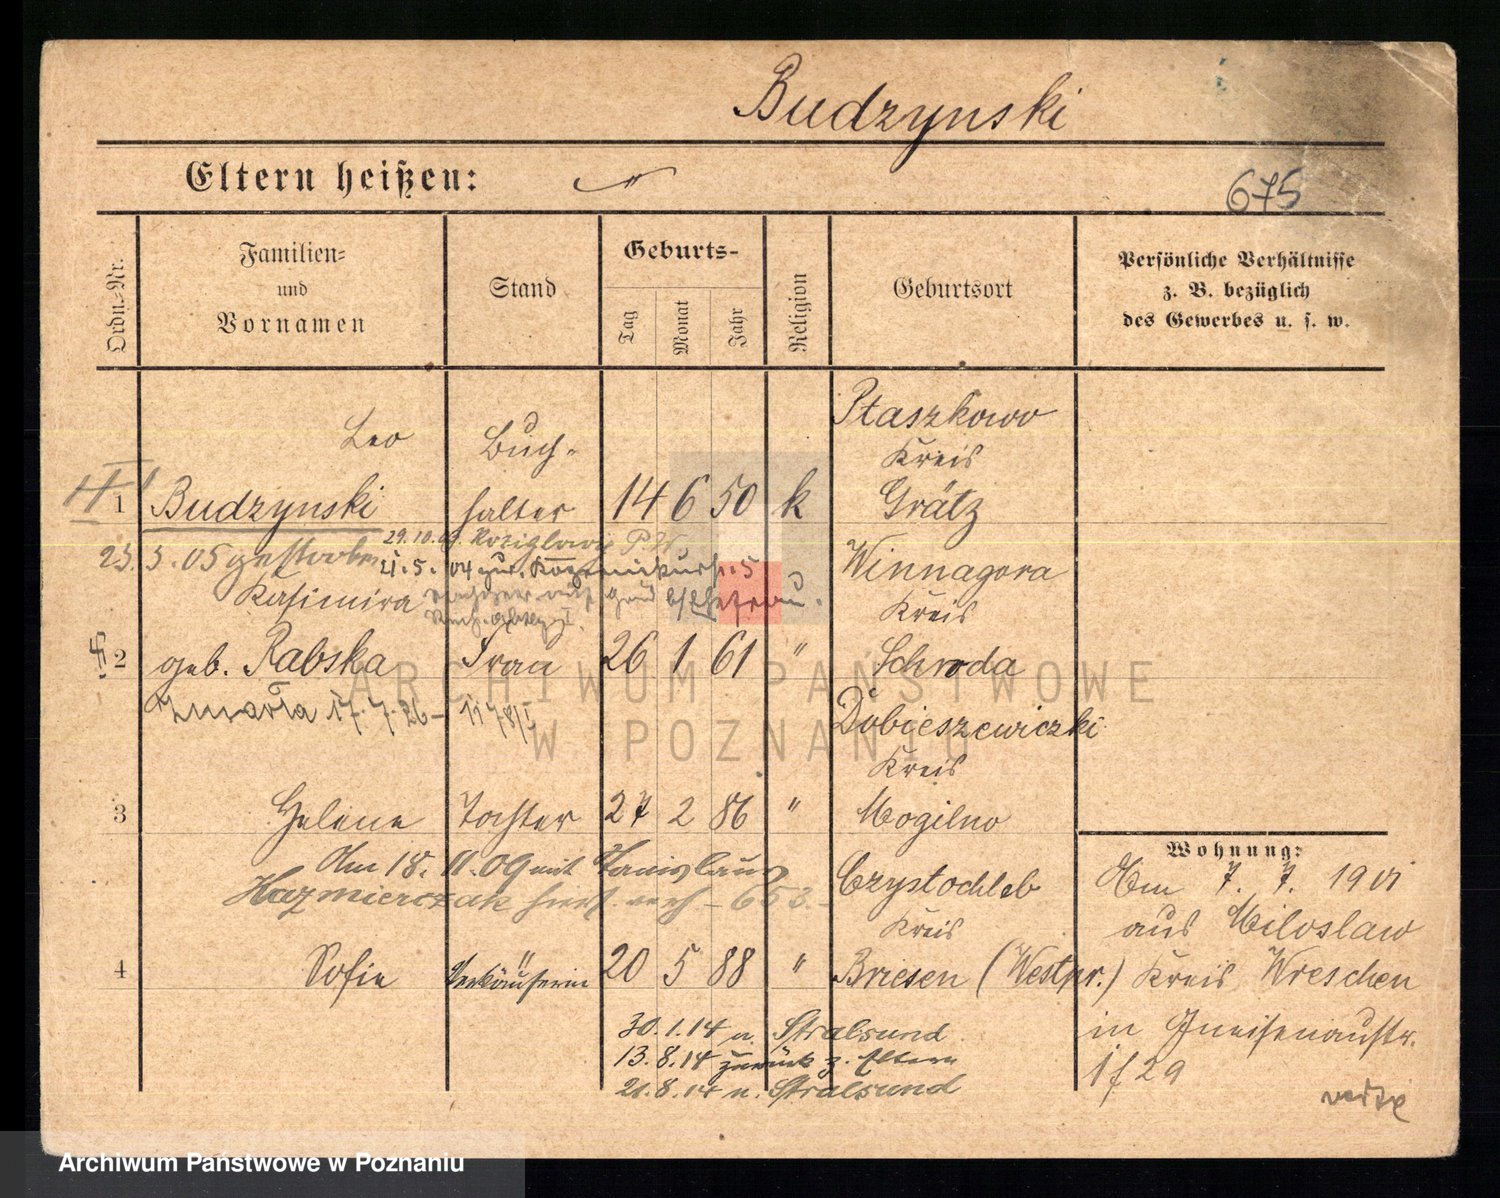 Budzynski
Eltern heißen:
675
Ordn.-Nr.
Familien-
und
Vornamen
Stand
Geburts-
Tag
Monat
Jahr
Religion
Geburtsort
Persönliche Verhältnisse
z. B. bezüglich
des Gewerbes u. s. w.
Leo
Buch-
Ptaszkowo
Kreis
1 Budzynski halter 14 6 50 k Grätz
23. 3. 05 gestorben
29.10.
4.5. 04 zur.
Ehefrau.
Kasimira
Winnagora
Kreis
2 geb. Rabska Frau 26 1 61 " Schroda
Zmarła 17.7.26 –
Dobieszewiczki
Kreis
3 Helene Tochter 27 2 86 " Mogilno
Am 18. 11. 09 mit Stanislaus
Kazmierczak hier 653.
Czystochleb
Kreis
4 Sofie " 20 5 88 " Briesen (Westpr.)
Verkäuferin
30.1.14 n. Stralsund
13.8.14 zurück z. Eltern
21.8.14 n. Stralsund
Wohnung:
Am 7. 7. 1901
aus Miloslaw
Kreis Wreschen
in Gneisenaustr.
1 f 29
ARCHIWUM PAŃSTWOWE
W POZNANIU
Archiwum Państwowe w Poznaniu